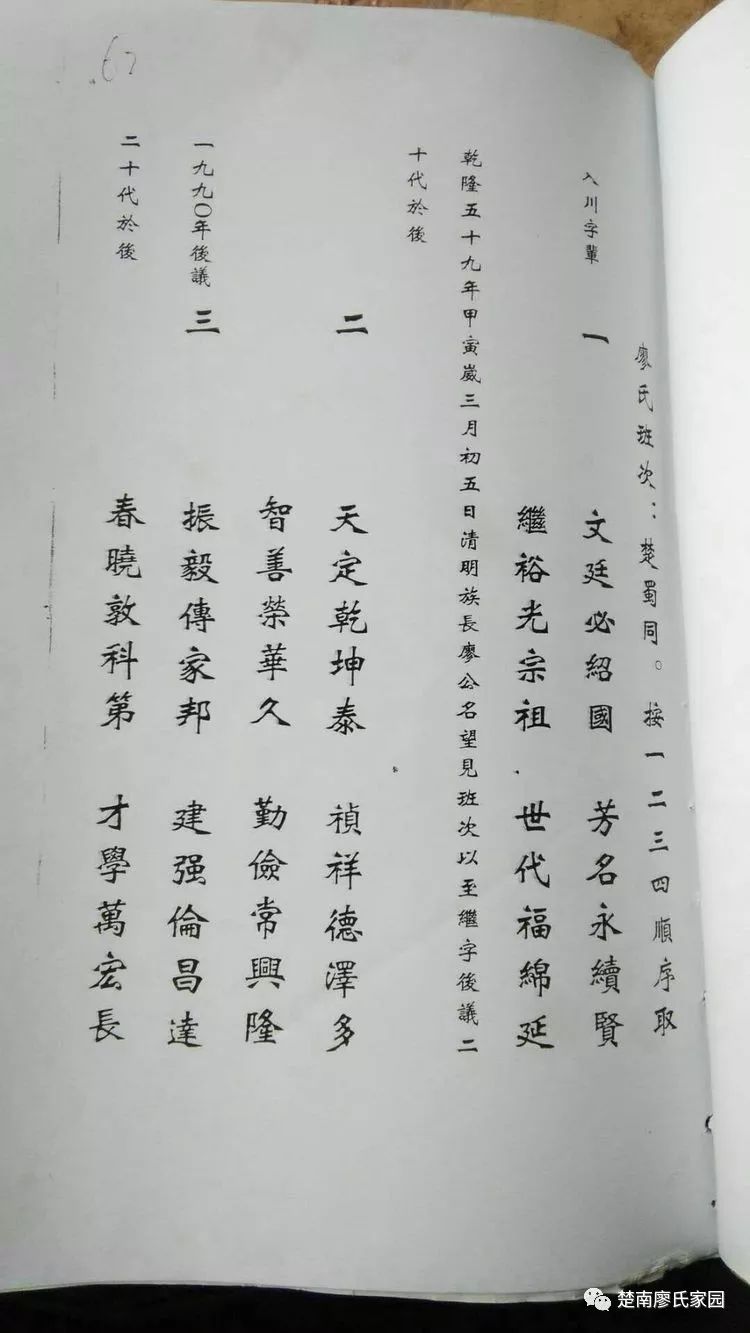 廖氏班次：楚蜀同。按一二三四順序取
入川字輩
一
文廷必紹國 芳名永續賢
繼裕光宗祖 世代福綿延
乾隆五十九年甲寅歲三月初五日清明族長廖公名望見班次以至繼字後議二
十代於後
二
天定乾坤泰 禎祥德澤多
智善榮華久 勤儉常興隆
一九九〇年後議
三
振毅傳家邦 建强倫昌達
二十代於後
春曉敦科第 才學萬宏長
62
楚南廖氏家园